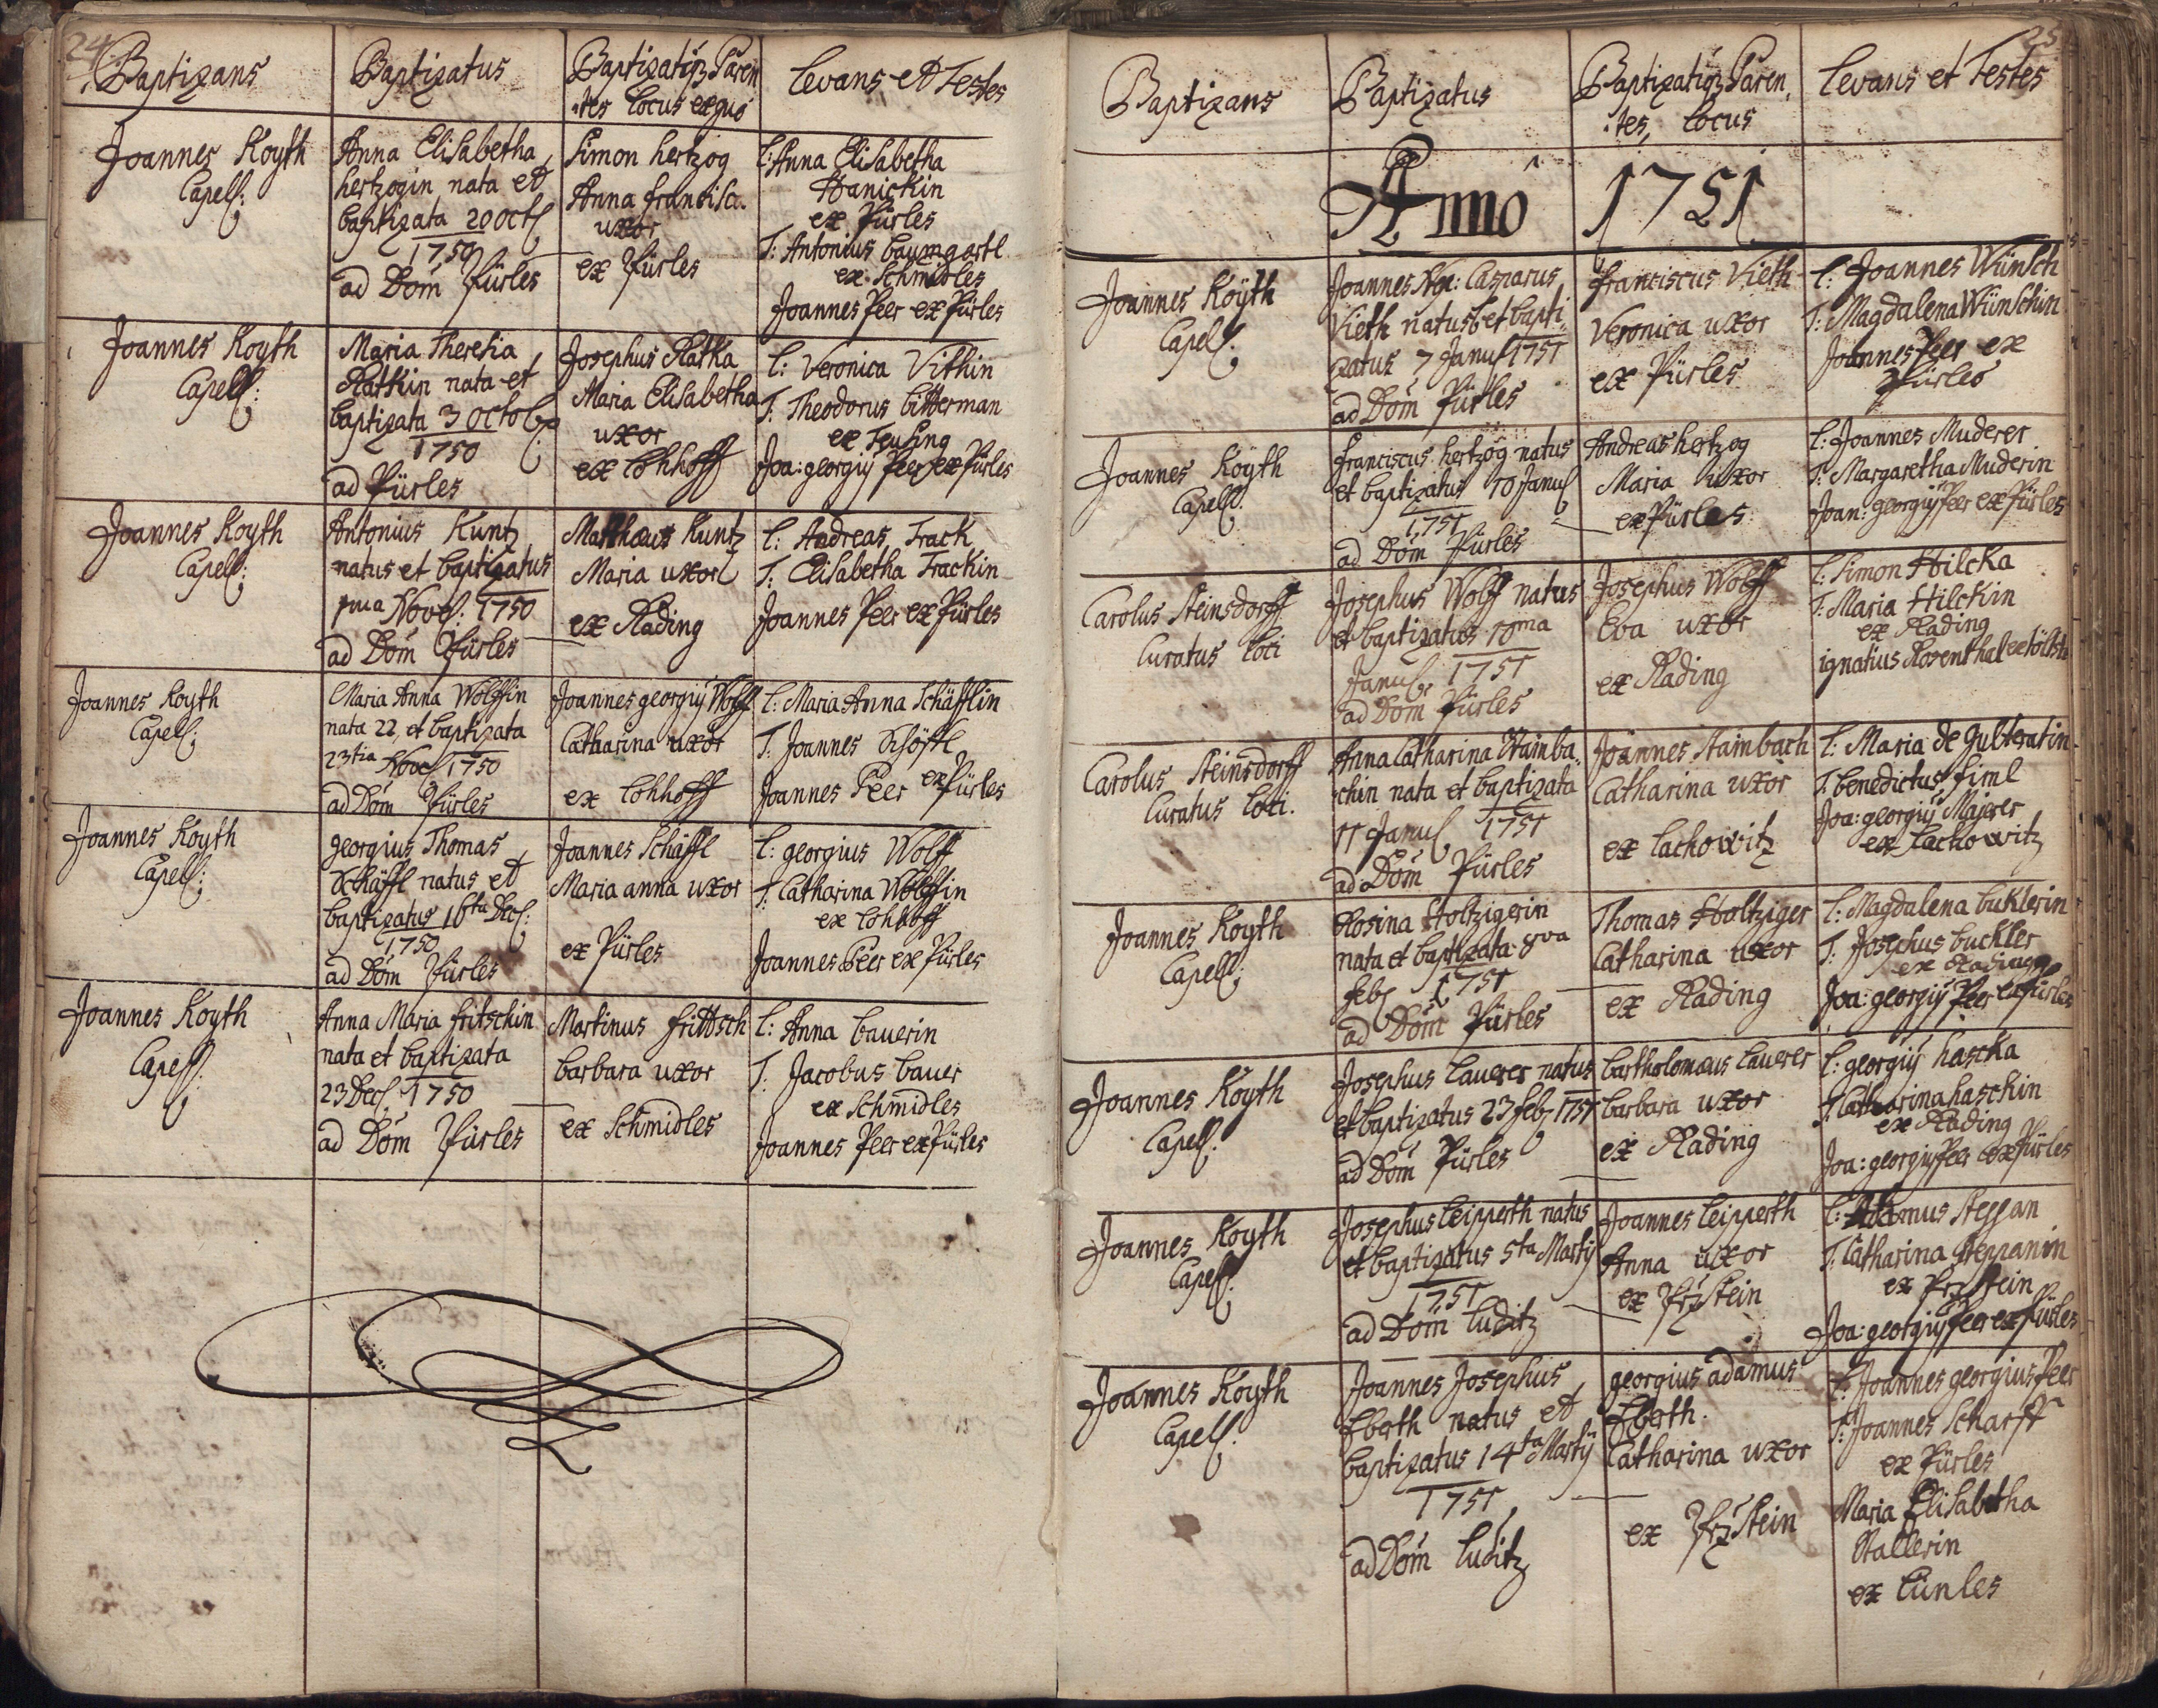 24
Baptizans
Baptizatus
Baptizatiq3 Paren
tes locus exquo
Levans et Testes
Joannes Koyth
Capell:
Anna Elisabetha
hertzogin nata et
baptizata 20 Oct
1750
ad Dom Pürles
Simon hertzog
Anna francisca
uxor
ex Pürles
L: Anna Elisabetha
Hanickin
ex Pürles
T: Antonius baumgartl
ex Schmidles
Joannes Peer ex Pürles
Joannes Koyth
Capell:
Maria Theresia
Rathin nata et
baptizata 3 Octob
1750
ad Pürles
Josephus Ratka
Maria Elisabetha
uxor
ex Lohhoff
L: Veronica Vithin
T: Theodorus bitterman
ex Teusing
Joa: georgiy Peer ex Pürles
Joannes Koyth
Capell:
Antonius Kuntz
natus et baptizatus
1ma Nove: 1750
ad Dom Pürles
Matthæus Kuntz
Maria uxor
ex Rading
L: Andreas Track
T: Elisabetha Trackin
Joannes Peer ex Pürles
Joannes Koyth
Capell:
Maria Anna Wolffin
nata 22 et baptizata
23tia Nove 1750
ad Dom Pürles
Joannes georgiy Wolff
Catharina uxor
ex Lohhoff
L: Maria Anna Schäfflin
T: Joannes Schöffl
Joannes Peer ex Pürles
Joannes Koyth
Capell:
georgius Thomas
Schäffl natus et
baptizatus 16ta Dec:
1750
ad Dom Pürles
Joannes Schäffl
Maria anna uxor
ex Pürles
L: georgius Wolff
T: Catharina Wolffin
ex Lohhoff
Joannes Peer ex Pürles
Joannes Koyth
Capell:
Anna Maria fritschin
nata et baptizata
23 Dec 1750
ad Dom Pürles
Martinus frittsch
barbara uxor
ex Schmidles
L: Anna bauerin
T: Jacobus bauer
ex Schmidles
Joannes Peer ex Pürles
25
Baptizans
Baptizatus
Baptizatiq3 Paren
tes, Locus
Levans et Testes
Anno 1751
Joannes Koÿth
Capell:
Joannes Nep: Casparus
Vieth natus et bapti
zatus 7 Janu 1751
ad Dom Pürles
franciscus Vieth
Veronica uxor
ex Pürles
L: Joannes Wünsch
T: Magdalena Wünschin
Joannes Peer ex
Pürles
Joannes Koÿth
Capell:
franciscus hertzog natus
et baptizatus 10 Janu
1751
ad Dom Pürles
Andreas hertzog
Maria uxor
ex Pürles
L: Joannes Muderer
T: Margaretha Muderin
Joan: georgiy Peer ex Pürles
Carolus Steinsdorff
Curatus loci
Josephus Wolff natus
et baptizatus 10ma
Janu 1751
ad Dom Pürles
Josephus Wolff
Eva uxor
ex Rading
L: Simon Hilcka
T: Maria Hilckin
ex Rading
ignatius Rosenthal
Carolus Steinsdorff
Curatus loci.
Anna Catharina Stainba
chin nata et baptizata
11 Janu 1751
ad Dom Pürles
Joannes Stainbach
Catharina uxor
ex Lachowitz
L: Maria de Gulteratin
T: benedictus firml
Joa: georgiy Majerer
ex Lachowitz
Joannes Koyth
Capell:
Rosina Holtzigerin
nata et baptizata 8va
feb 1751
ad Dom Pürles
Thomas Holtziger
Catharina uxor
ex Rading
L: Magdalena buklerin
T: Josephus buckler
ex Rading
Joa: georgiy Peer ex Pürles
Joannes Koyth
Capell:
Josephus Lauerer natus
et baptizatus 23 feb 1751
ad Dom Pürles
bartholomæus Lauerer
barbara uxor
ex Rading
L: georgiy haschka
T: Catharina haschin
ex Rading
Joa: georgiy Peer ex Pürles
Joannes Koyth
Capell:
Josephus Leipperth natus
et baptizatus 5ta Martÿ
1751
ad Dom Luditz
Joannes Leipperth
Anna uxor
ex PrzStein
L: Adamus Steppan
T: Catharina Steppanin
ex PrzStein
Joa: georgiy Peer ex Pürles
Joannes Koyth
Capell:
Joannes Josephus
Eberth natus et
baptizatus 14ta Martÿ
1751
ad Dom Luditz
georgius adamus
Eberth.
Catharina uxor
ex PrzStein
L: Joannes georgius Peer
T: Joannes Scharff
ex Pürles
Maria Elisabetha
Stallerin
ex Lünles